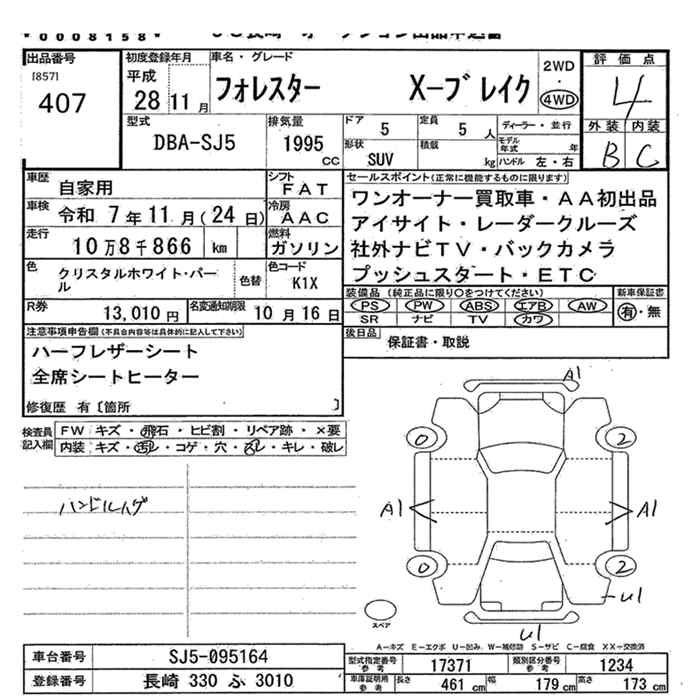 *0008158*
出品番号
[857]
407
初度登録年月
平成
28 11 月
車名・グレード
フォレスター X-ブレイク
2WD
・
4WD
評価点
4
外装 内装
B C
型式
DBA-SJ5
排気量
1995
cc
ドア
5
定員
5 人
ディーラー・並行
形状
SUV
積載
kg
モデル年式 年
ハンドル 左・右
車歴
自家用
シフト
FAT
車検
令和 7年11月(24日)
冷房
AAC
走行
10万8千866 km
燃料
ガソリン
色
クリスタルホワイト・パール
色替
色コード
K1X
R券
13,010 円
名変通知期限
10 月 16 日
セールスポイント(正常に機能するものに限ります)
ワンオーナー買取車・AA初出品
アイサイト・レーダークルーズ
社外ナビTV・バックカメラ
プッシュスタート・ETC
装備品(純正品に限り○をつけてください)
PS PW ABS エアB AW
SR ナビ TV カワ
新車保証書
有・無
後日品
保証書・取説
注意事項申告欄(不具合内容等は具体的に記入して下さい)
ハーフレザーシート
全席シートヒーター
修復歴 有〔箇所 〕
検査員記入欄
FW キズ・飛石・ヒビ割・リペア跡・×要
内装 キズ・汚レ・コゲ・穴・スレ・キレ・破レ
ハンドルハゲ
A1
0 2
A1 A1
0 2
U1
スペア
U1
A-キズ E-エクボ U-凹み W-補修跡 S-サビ C-腐食 XX-交換済
車台番号
SJ5-095164
登録番号
長崎 330 ふ 3010
型式指定番号
参考
17371
類別区分番号
参考
1234
車庫証明用
参考
長さ 461 cm 幅 179 cm 高さ 173 cm